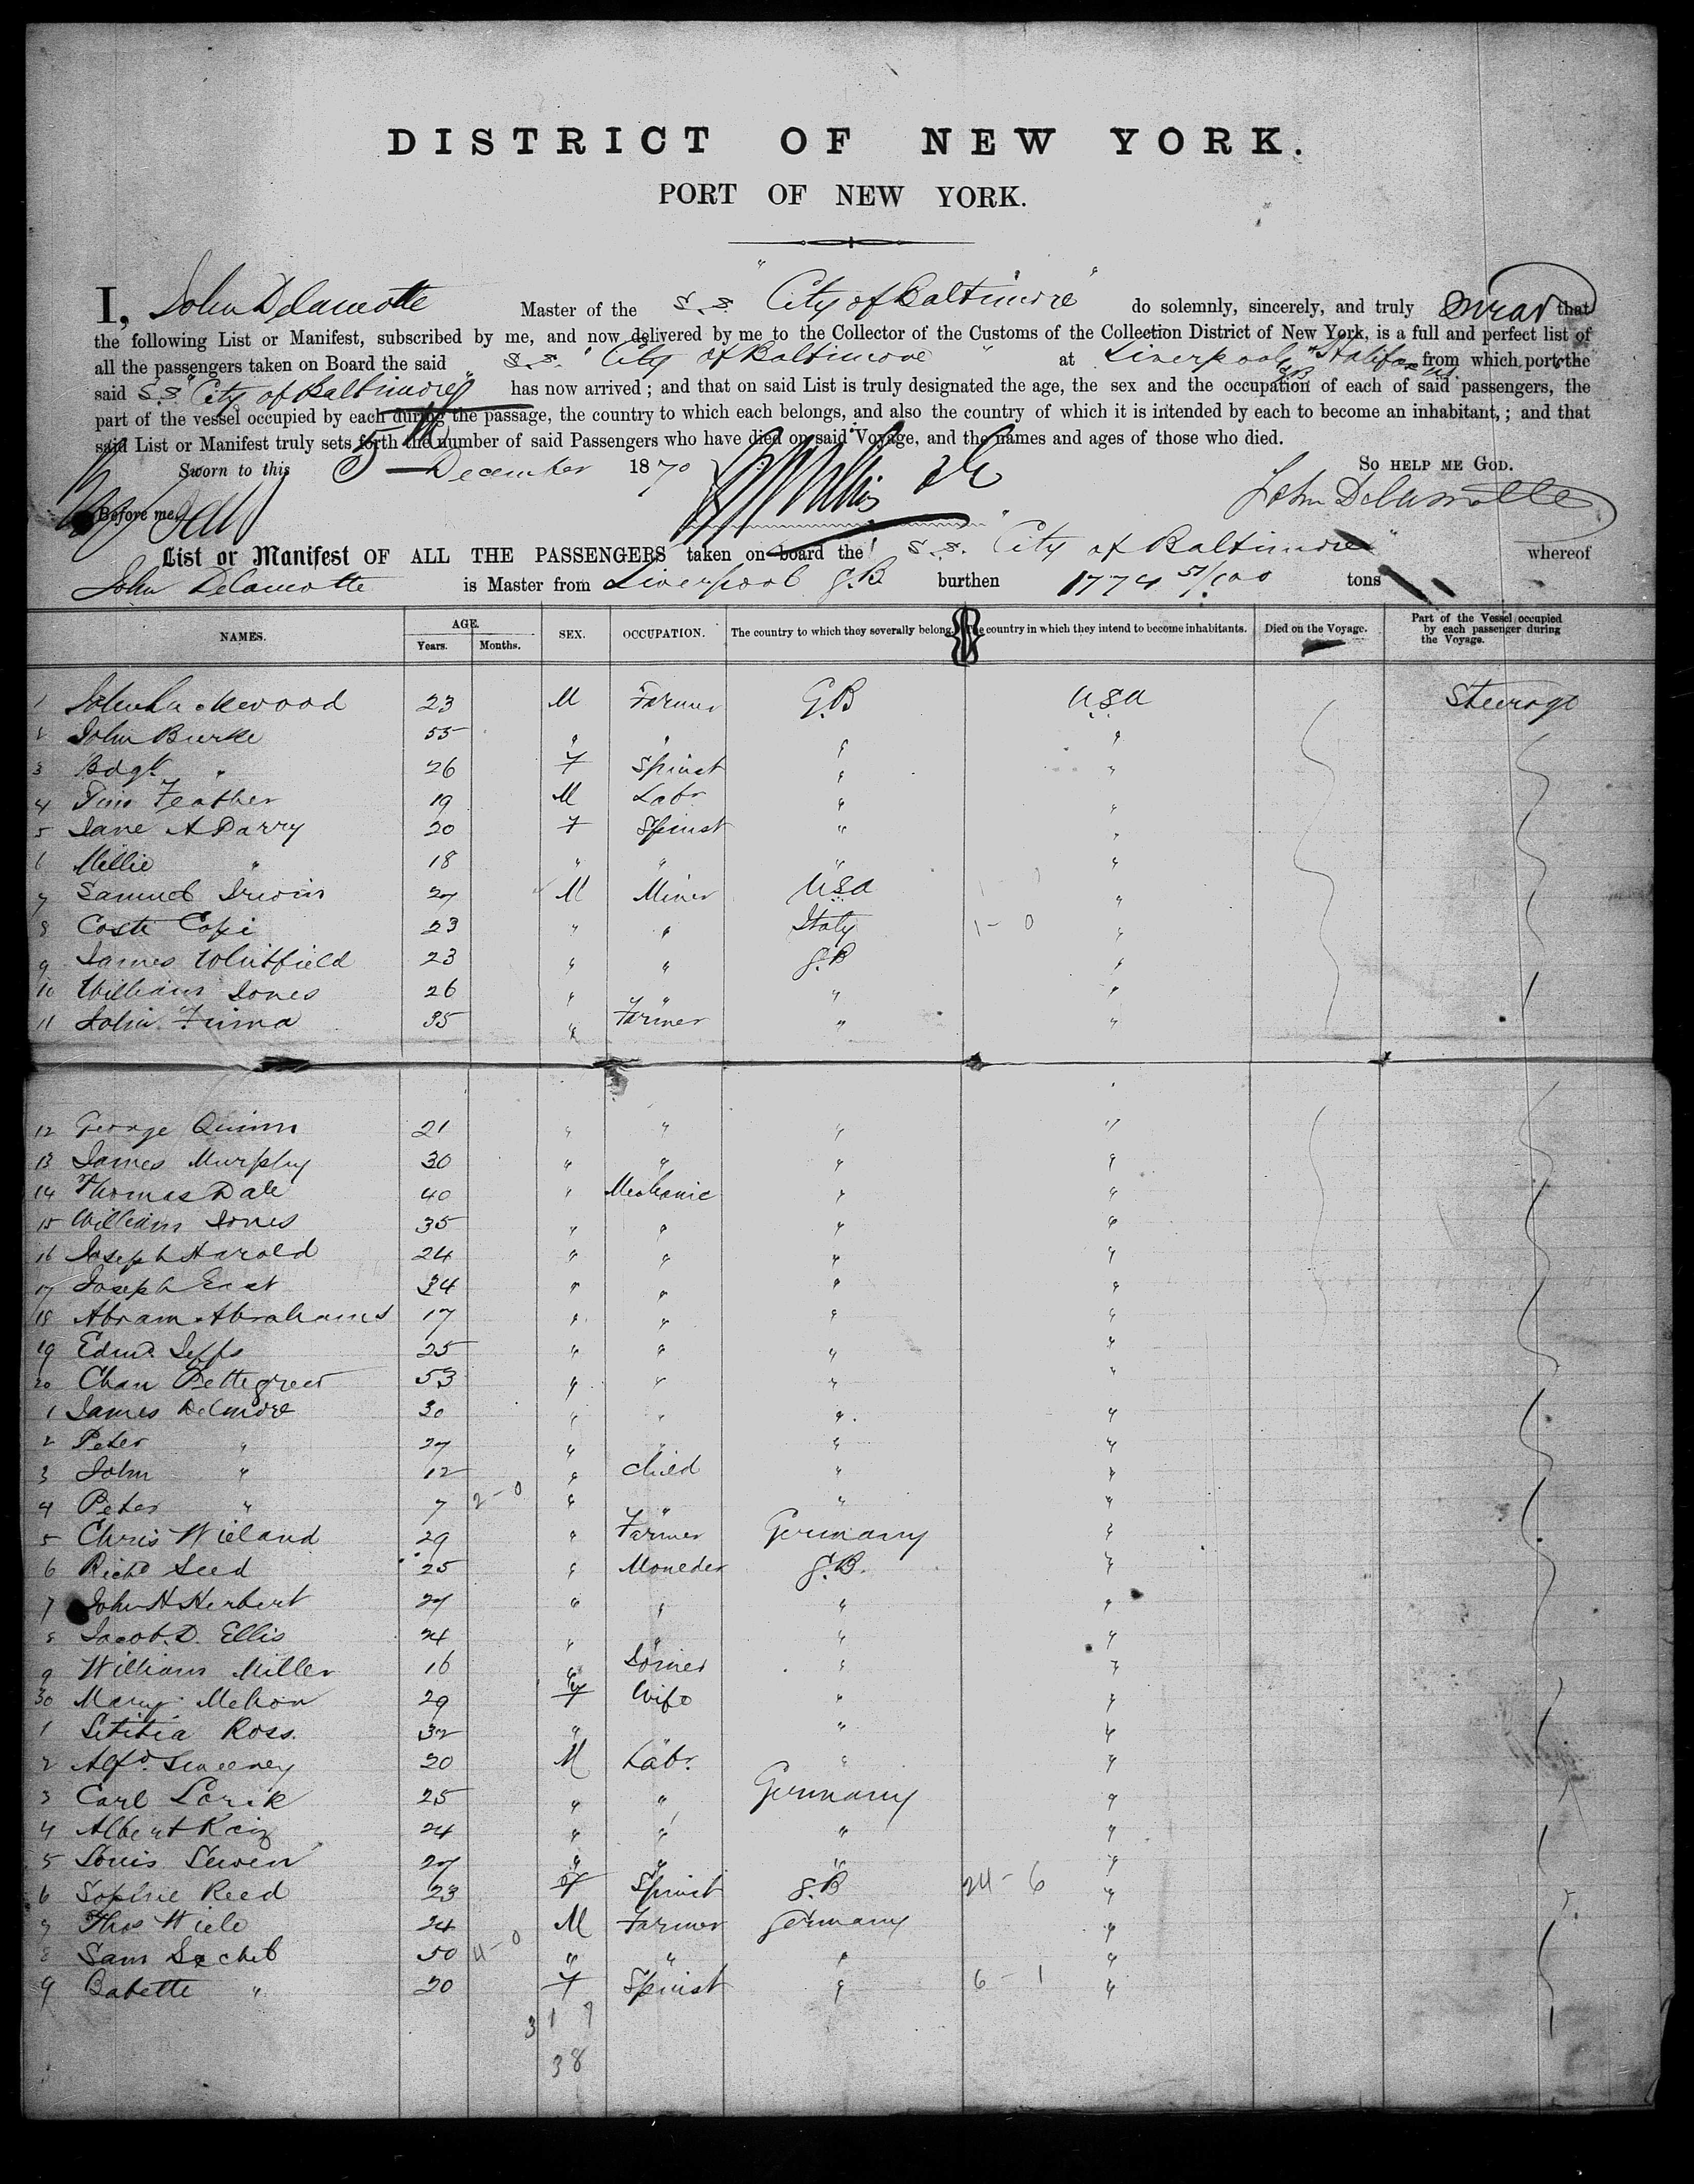 DISTRICT OF NEW YORK.
PORT OF NEW YORK.
I, John Delamotte Master of the S.S. "City of Baltimore" do solemnly, sincerely, and truly swear that
the following List or Manifest, subscribed by me, and now delivered by me to the Collector of the Customs of the Collection District of New York, is a full and perfect list of
all the passengers taken on Board the said S.S. "City of Baltimore" at Liverpool GB & Halifax NS from which port the
said S.S. "City of Baltimore" has now arrived; and that on said List is truly designated the age, the sex and the occupation of each of said passengers, the
part of the vessel occupied by each during the passage, the country to which each belongs, and also the country of which it is intended by each to become an inhabitant,; and that
said List or Manifest truly sets forth the number of said Passengers who have died on said Voyage, and the names and ages of those who died.
Sworn to this December 1870 So HELP ME GOD.
Before me, John Delamotte
List or Manifest OF ALL THE PASSENGERS taken on board the S.S. City of Baltimore" whereof
John Delamotte is Master from Liverpool G.B burthen 1774 51/100 tons
NAMES. AGE. Years. Months. SEX. OCCUPATION. The country to which they severally belong. The country in which they intend to become inhabitants. Died on the Voyage. Part of the Vessel occupied by each passenger during the Voyage.
1 John 23 M Farmer G.B U.S.A Steerage
2 John Burke 55 " " " "
3 Bdgt " 26 F Spinst " "
4 Tim Feather 19 M Labr " "
5 Jane A Parry 20 F Spinst " "
6 Millie " 18 " " " "
7 Samuel Irwin 27 M Miner U.S.A "
8 Coste Copi 23 " " Italy 1-0 "
9 James Whitfield 23 " " G.B "
10 William Jones 26 " " " "
11 John 35 " Farmer " "
12 George Quinn 21 " " " "
13 James Murphy 30 " " " "
14 Thomas Dale 40 " Mechanic " "
15 William Jones 35 " " " "
16 Joseph Harold 24 " " " "
17 Joseph East 34 " " " "
18 Abram Abrahams 17 " " " "
19 Edmd. Jepps 25 " " " "
20 Chan Pettegrew 53 " " " "
1 James Delmore 30 " " " "
2 Peter " 27 " " " "
3 John " 12 " Child " "
4 Peter " 7 2-0 " " " "
5 Chris Wieland 29 " Farmer Germany "
6 Richd Seed 25 " Moulder G.B. "
7 John H Herbert 27 " " " "
8 Jacob. D. Ellis 24 " " " "
9 William Miller 16 " Joiner " "
30 Mary 29 F Wife " "
1 Letitia Ross. 32 " " " "
2 Alfd. Sweeney 20 M Labr. " "
3 Carl Lorik 25 " " Germany "
4 Albert 24 " " " "
5 Louis 27 " " " "
6 Sophie Reed 23 F Spinst G.B 24-6 "
7 Thos Wiele 24 M Farmer Germany "
8 Sam 50 4-0 " " " "
9 Babette " 20 F Spinst " 6-1 "
31 7
38